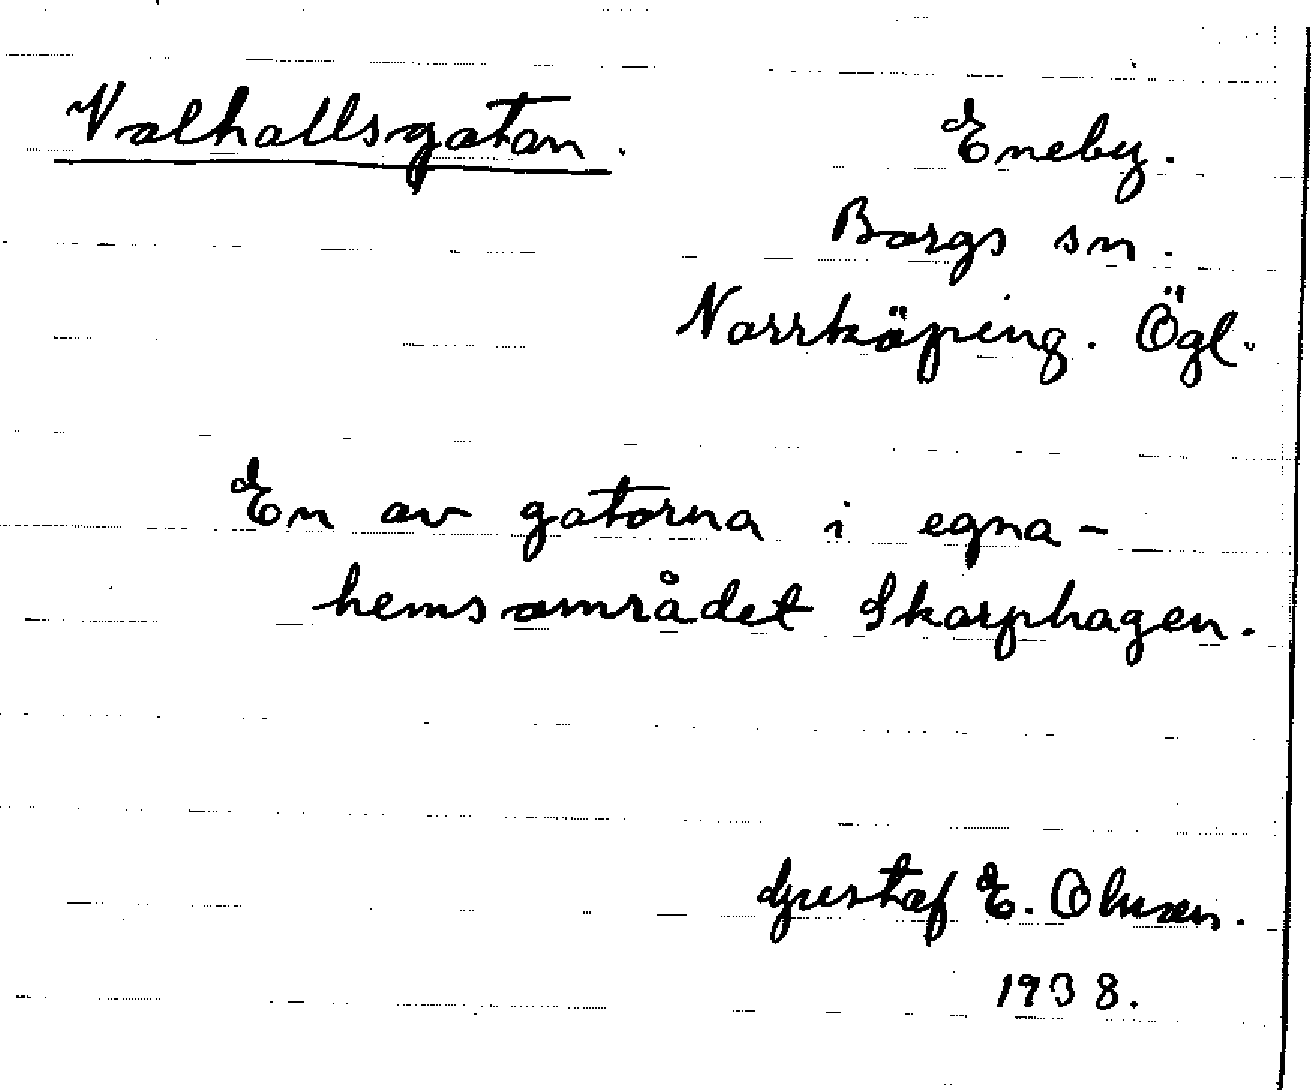 Valhallsgatan.
Eneby.
Borgs sn.
Norrköping. Ögl.
En av gatorna i egna-
hemsområdet Skarphagen.
Gustaf E. Olsson.
1938.